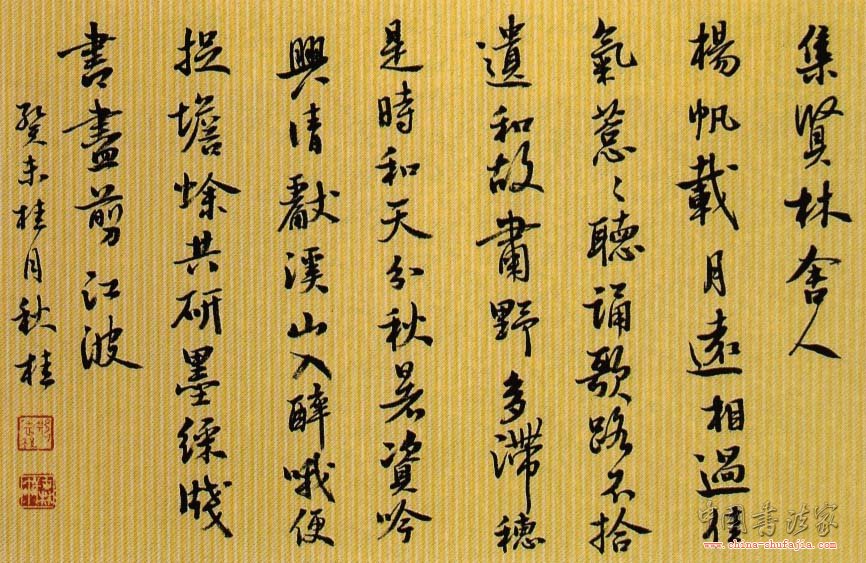 集賢林舍人
楊帆載月遠相過佳
氣葱〻聽誦歌路不拾
遺知政肅野多滯穗
是時和天分秋暑資吟
興晴獻溪山入醉哦便
捉蟾蜍共研墨綵牋
書盡剪江波
癸未桂月秋桂
中国书法家
www.china-shufajia.com